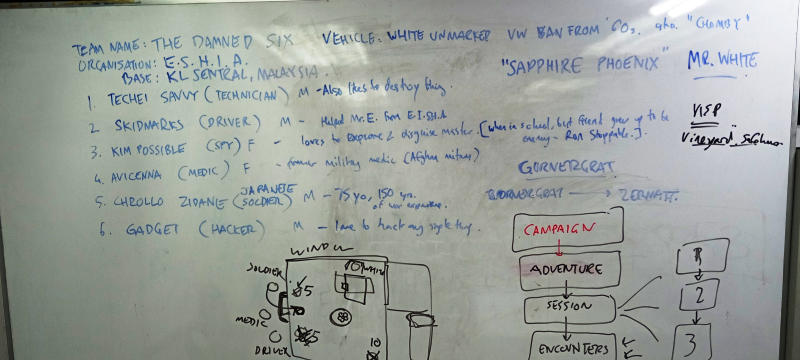 TEAM NAME: THE DAMNED SIX VEHICLE: WHITE UNMARKED VW VAN FROM '60s. aka. "CHOMBY"
ORGANISATION: E.S.H.I.A.
BASE: KL SENTRAL, MALAYSIA.
"SAPPHIRE PHOENIX" MR. WHITE
1. TECHEI SAVVY (TECHNICIAN) M - Also likes to destroy thing.
2 SKIDMARKS (DRIVER) M - Helped Mr. E. from E.I.SH.A
3. KIM POSSIBLE (SPY) F - loves to explore & disguise master. [When in school, best friend grew up to be enemy - Ron Stoppable.].
4. AVICENNA (MEDIC) F - former military medic (Afghan
5. CHROLLO ZIDANE (JAPANESE SOLDIER) M - 75 yo, 150 yrs. of war experience.
6. GADGET (HACKER) M - love to hack any
VISP
Vineyard
GORNERGRAT
GORNERGRAT → ZERMATT.
CAMPAIGN
ADVENTURE
SESSION
ENCOUNTERS
1
2
3
WINDOW
SOLDIER
MEDIC
DRIVER
5
10
5
10